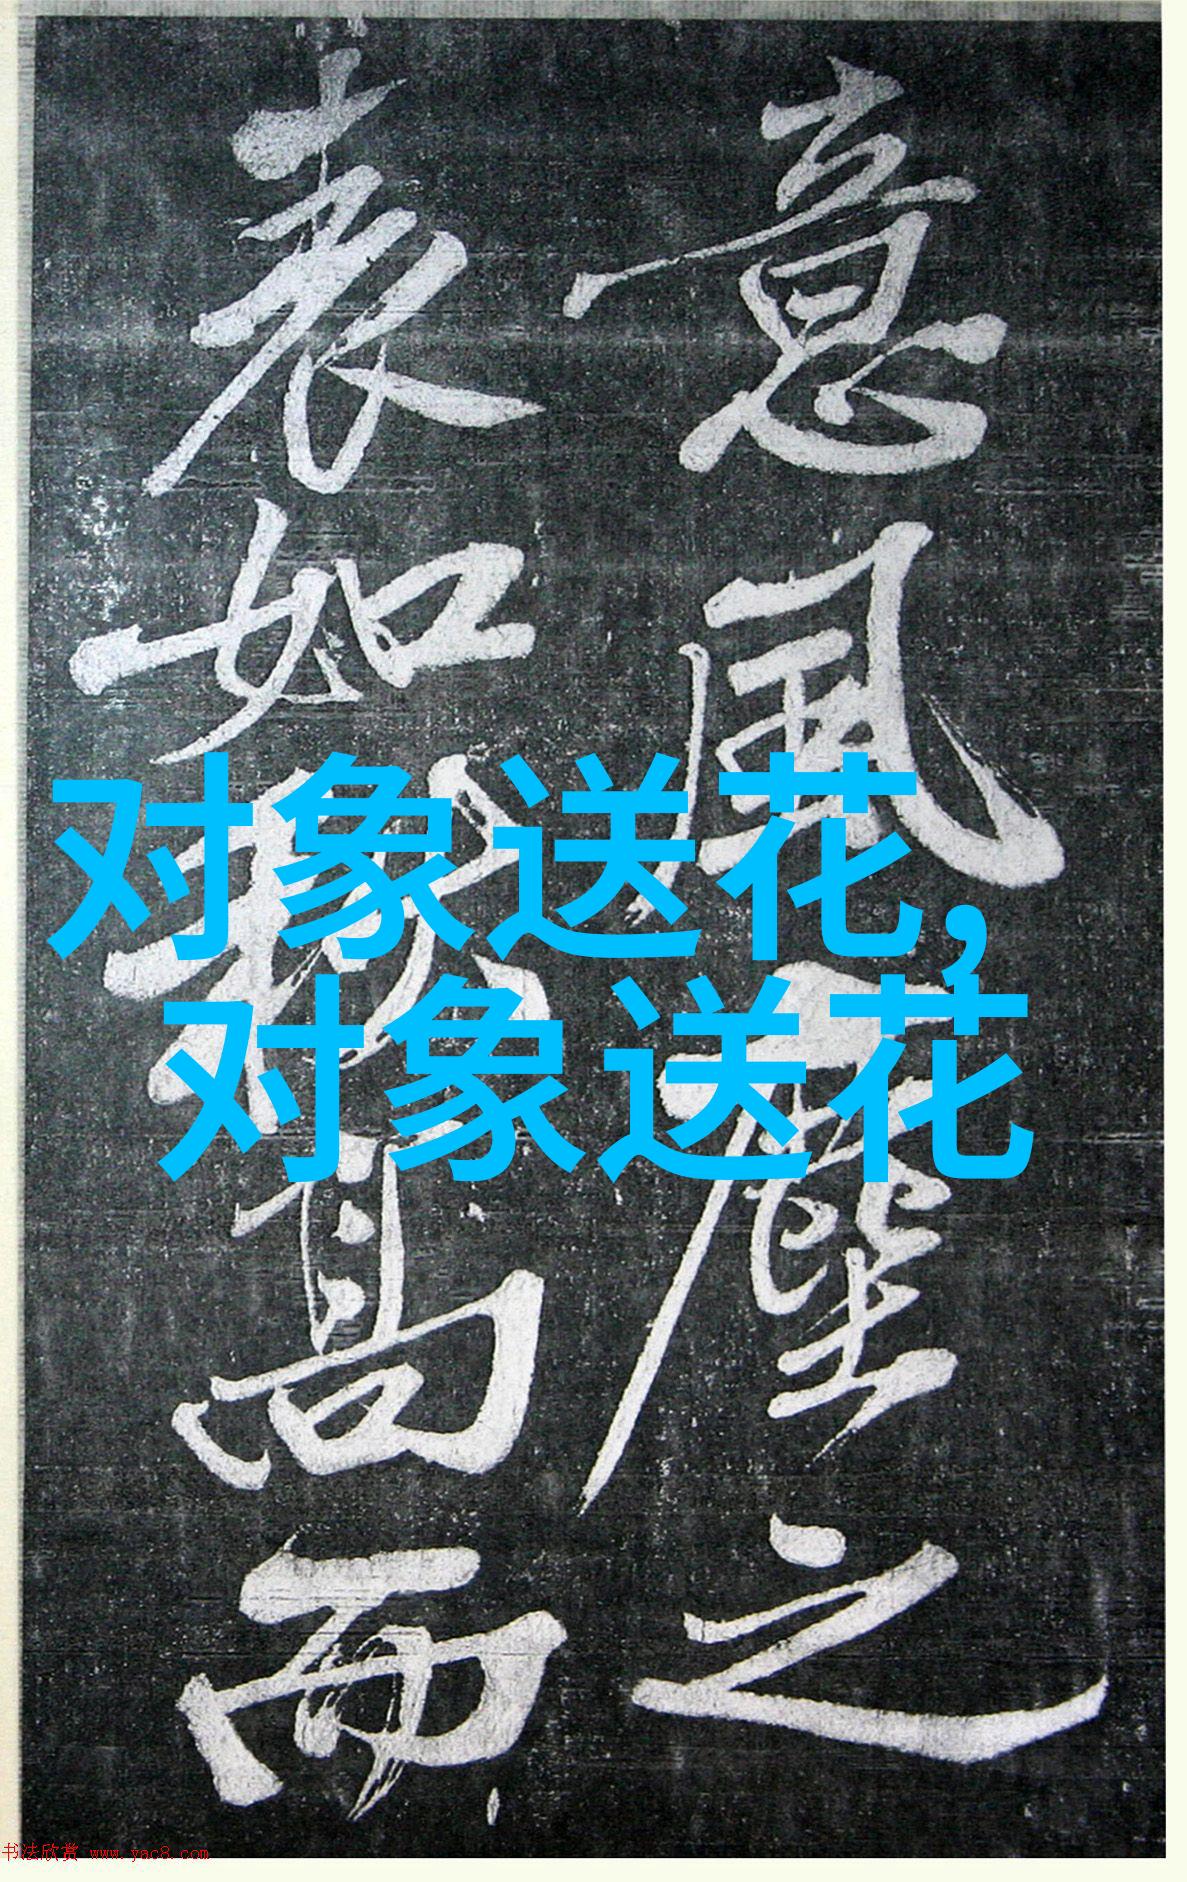 意風塵之
表如秋高而
对象送花,
对象送花
书法欣赏 www.yac8.com